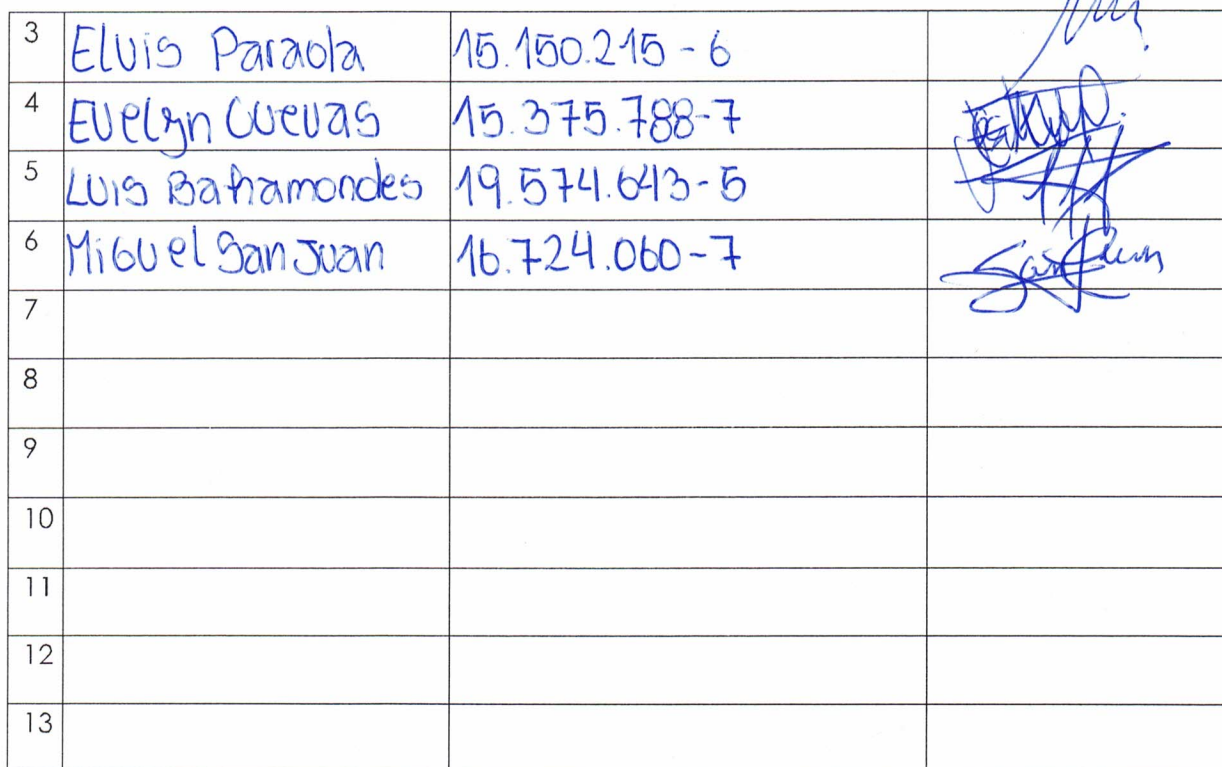 3 Elvis Paraola 15.150.215-6
4 Evelyn Cuevas 15.375.788-7
5 Luis Bahamondes 19.574.643-5
6 Miguel San Juan 16.724.060-7
7
8
9
10
11
12
13